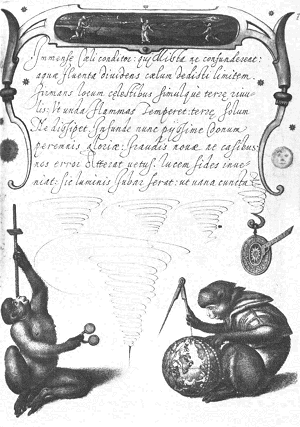 Immense Cœli conditor: qui Mixta ne confunderent:
aquæ fluenta dividens cælum dedisti limitem.
Firmans locum celestibus simulque terre rivu-
lis: Ut unda flammas Temperet: terre solum
Ne dissipet. Infunde nunc pyssime Donum
perennis gloriæ: fraudis novæ ne casibus:
nos error Atterat vetus: lucem fides inve-
niat: sic luminis Jubar ferat: ut vana cuncta